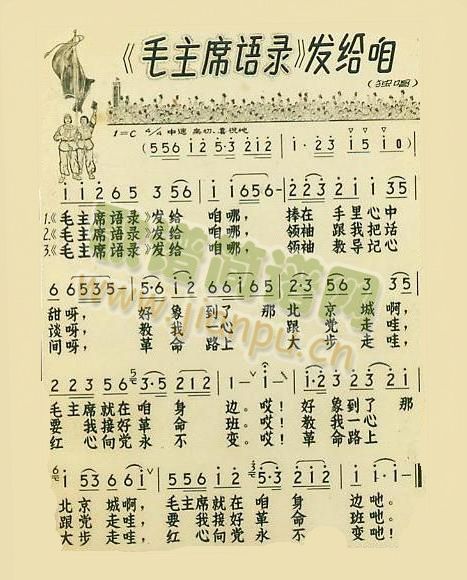 《毛主席语录》发给咱
(独唱)
1=C 4/4 中速 亲切、喜悦地
(556 i2 5·3 212 | 1·2 33 i 5 i 0)
i i 2 6 5 3 56 | i i 6 56- | 2 2 3 2 1 2 i 35
1.《毛主席语录》发给 咱哪, 捧在 手里心中
2.《毛主席语录》发给 咱哪, 领袖 跟我把话
3.《毛主席语录》发给 咱哪, 领袖 教导记心
6 6535- | 5·i 6 5 6 i 65 | 2·3 5 3 i 35
甜呀, 好象到了那 北京城啊,
谈呀, 教我一心 跟党走哇,
间呀, 革命路上 大步走哇,
2 2 3 5 6 3·5 212 | 1- i- | i·2 3 2 3 2 i 2
毛主席就在咱身 边。哎! 好象到了那
要我接好革命 班。哎! 教我一心
红心向党永不 变。哎! 革命路上
北京城啊, 毛主席就在咱身 边吔。
跟党走哇, 要我接好革命 班吔。
大步走哇, 红心向党永不 变吔。
www.jianpu.cn